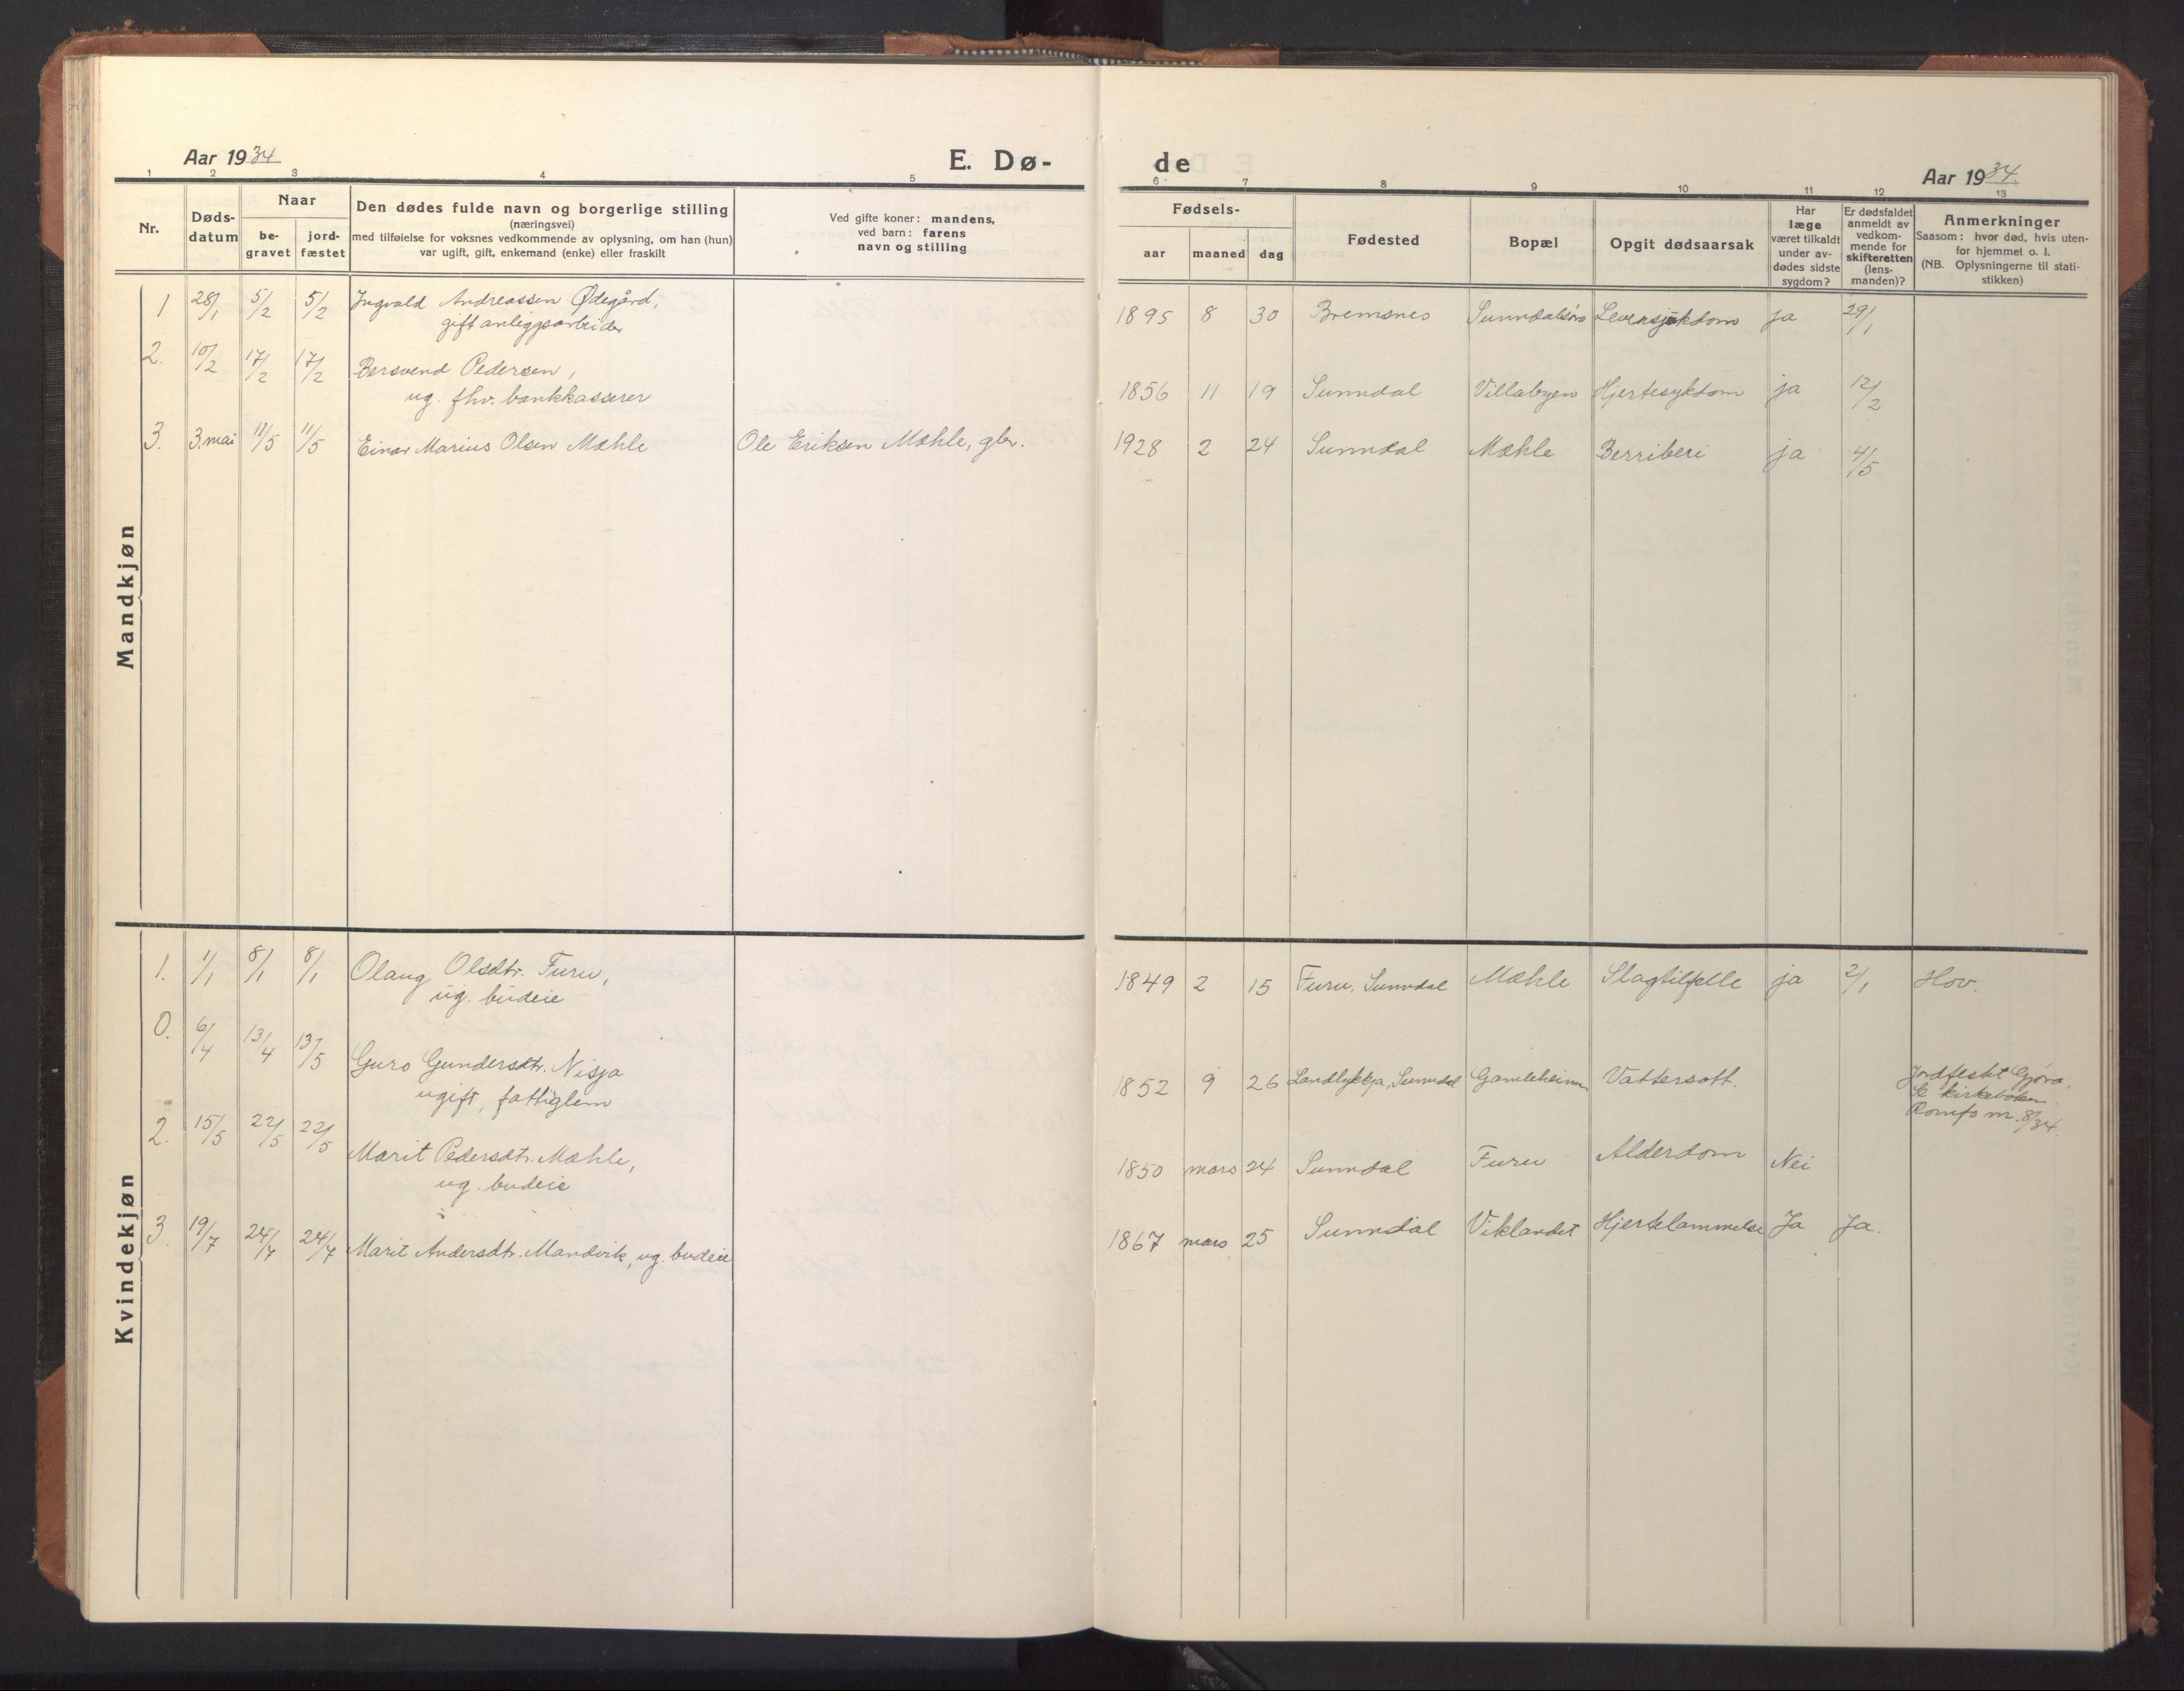 Aar 1934
E. Dø-
de
Aar 1934.
1 2 3 4 5 6 7 8 9 10 11 12 13
Nr.
Døds-
datum
Naar
be-
gravet
jord-
fæstet
Den dødes fulde navn og borgerlige stilling
(næringsvei)
med tilføielse for voksnes vedkommende av oplysning, om han (hun)
var ugift, gift, enkemand (enke) eller fraskilt
Ved gifte koner: mandens,
ved barn: farens
navn og stilling
Fødsels-
aar maaned dag
Fødested
Bopæl
Opgit dødsaarsak
Har
læge
været tilkaldt
under av-
dødes sidste
sygdom?
Er dødsfaldet
anmeldt av
vedkom-
mende for
skifteretten
(lens-
manden)?
Anmerkninger
Saasom: hvor død, hvis uten-
for hjemmet o. l.
(NB. Oplysningerne til stati-
stikken)
Mandkjøn
1 28/1 5/2 5/2 Ingvald Andreassen Ødegård,
gift anleggsarbeider
1895 8 30 Bremsnes Sunndalsøra Leversjukdom ja 29/1
2. 10/2 17/2 17/2 Bersvend Pedersen,
ug. fhv. bankkasserer
1856 11 19 Sunndal Villabyen Hjertesykdom ja 12/2
3. 3. mai 11/5 11/5 Einar Marius Olsen Mæhle Ole Eriksen Mæhle, gbr. 1928 2 24 Sunndal Mæhle Berriberi ja 4/5
Kvindekjøn
1. 1/1 8/1 8/1 Olaug Olsdtr. Furu,
ug. budeie
1849 2 15 Furu, Sunndal Mæhle Slagtilfelle ja 2/1 Hov.
0. 6/4 13/4 13/5 Guro Gundersdtr. Nisja
ugift, fattiglem
1852 9 26 Landlykkja, Sunndal Gamleheimen Vattersott.
Jordfestet Gjøra,
Se kirkeboken
Romfo nr. 8/34.
2. 15/5 22/5 22/5 Marit Pedersdtr. Mæhle,
ug. budeie
1850 mars 24 Sunndal Furu Alderdom Nei
3. 19/7 24/7 24/7 Marit Andersdtr. Mandvik, ug. budeie 1867 mars 25 Sunndal Viklandet Hjertelammelse Ja Ja.